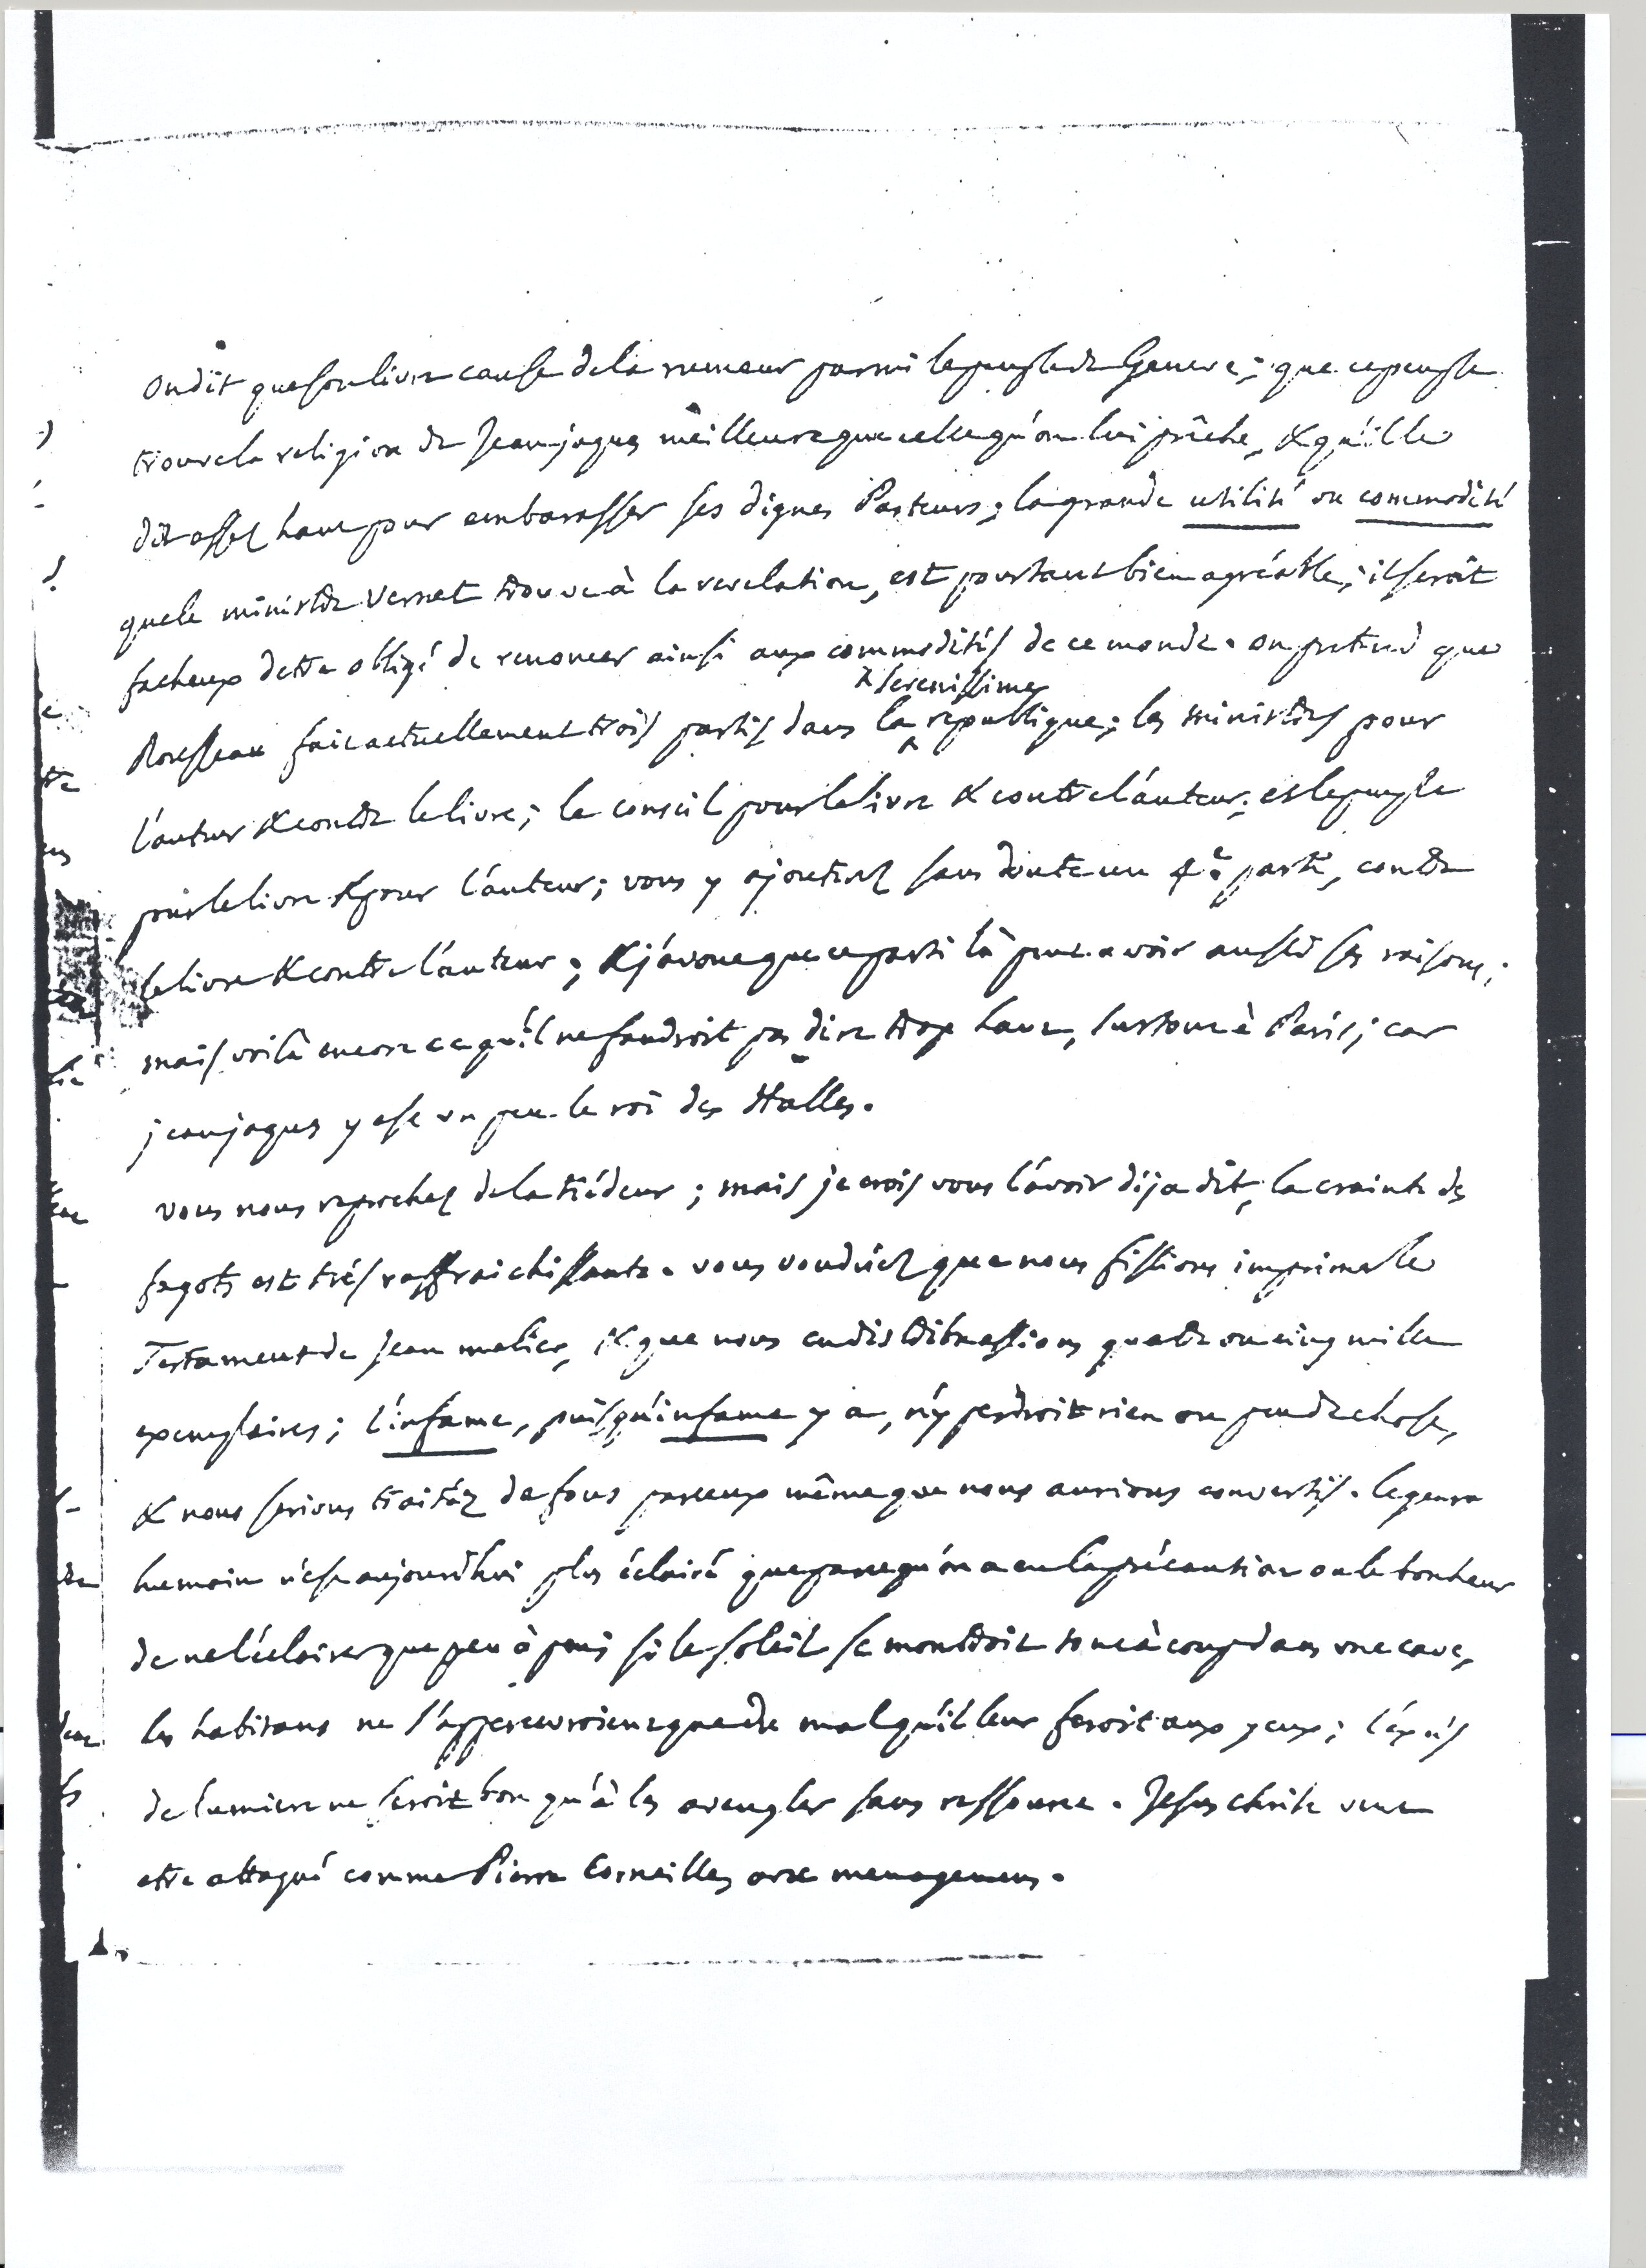 on dit que son livre cause de la rumeur parmi le peuple de Geneve; que ce peuple
trouve la religion de Jean jaques meilleure que celle qu'on lui prêche, & qu'il le
dit assez haut pour embarasser ses dignes Pasteurs; la grande utilité ou commodité
que le ministre Vernet trouve à la revelation, est pourtant bien agréable; il seroit
facheux detre obligé de renoncer ainsi aux commoditéś de ce monde. on pretend que
serenissime
Rousseau fait actuellement trois partis dans la republique; les ministres pour
l'auteur & contre le livre; le conseil pour le livre & contre l'auteur; et le peuple
pour le livre & pour l'auteur; vous y ajouterez sans doute un 4e. parti, contre
le livre & contre l'auteur; & j'avoue que ce parti là peut avoir aussi ses raisons;
mais voilà encore ce qu'il ne faudroit pas dire trop haut, surtout à Paris; car
jean jaques y est un peu le roi des Halles.
vous nous reprochez de la tiédeur; mais je crois vous l'avoir déja dit, la crainte des
fagots est trés raffraichissante. vous voudriez que nous fissions imprimer le
Testament de Jean meslier, & que nous en distribuassions quatre ou cinq mille
exemplaires; l'infame, puisqu'infame y a, n'y perdroit rien ou peu de chose,
& nous serions traitéz de fous par ceux même que nous aurions convertis. le genre
humain n'est aujourdhui plus éclairé que parce qu'on a eu la précaution ou le bonheur
de ne l'éclairer que peu à peu; si le soleil se montroit tout à coup dans une cave,
les habitans ne s'appercevroient que du mal qu'il leur feroit aux yeux; l'éxcés
de lumiere ne seroit bon qu'à les aveugler sans ressource. Jesus christ veut
etre attaqué comme Pierre Corneille, avec menagement.